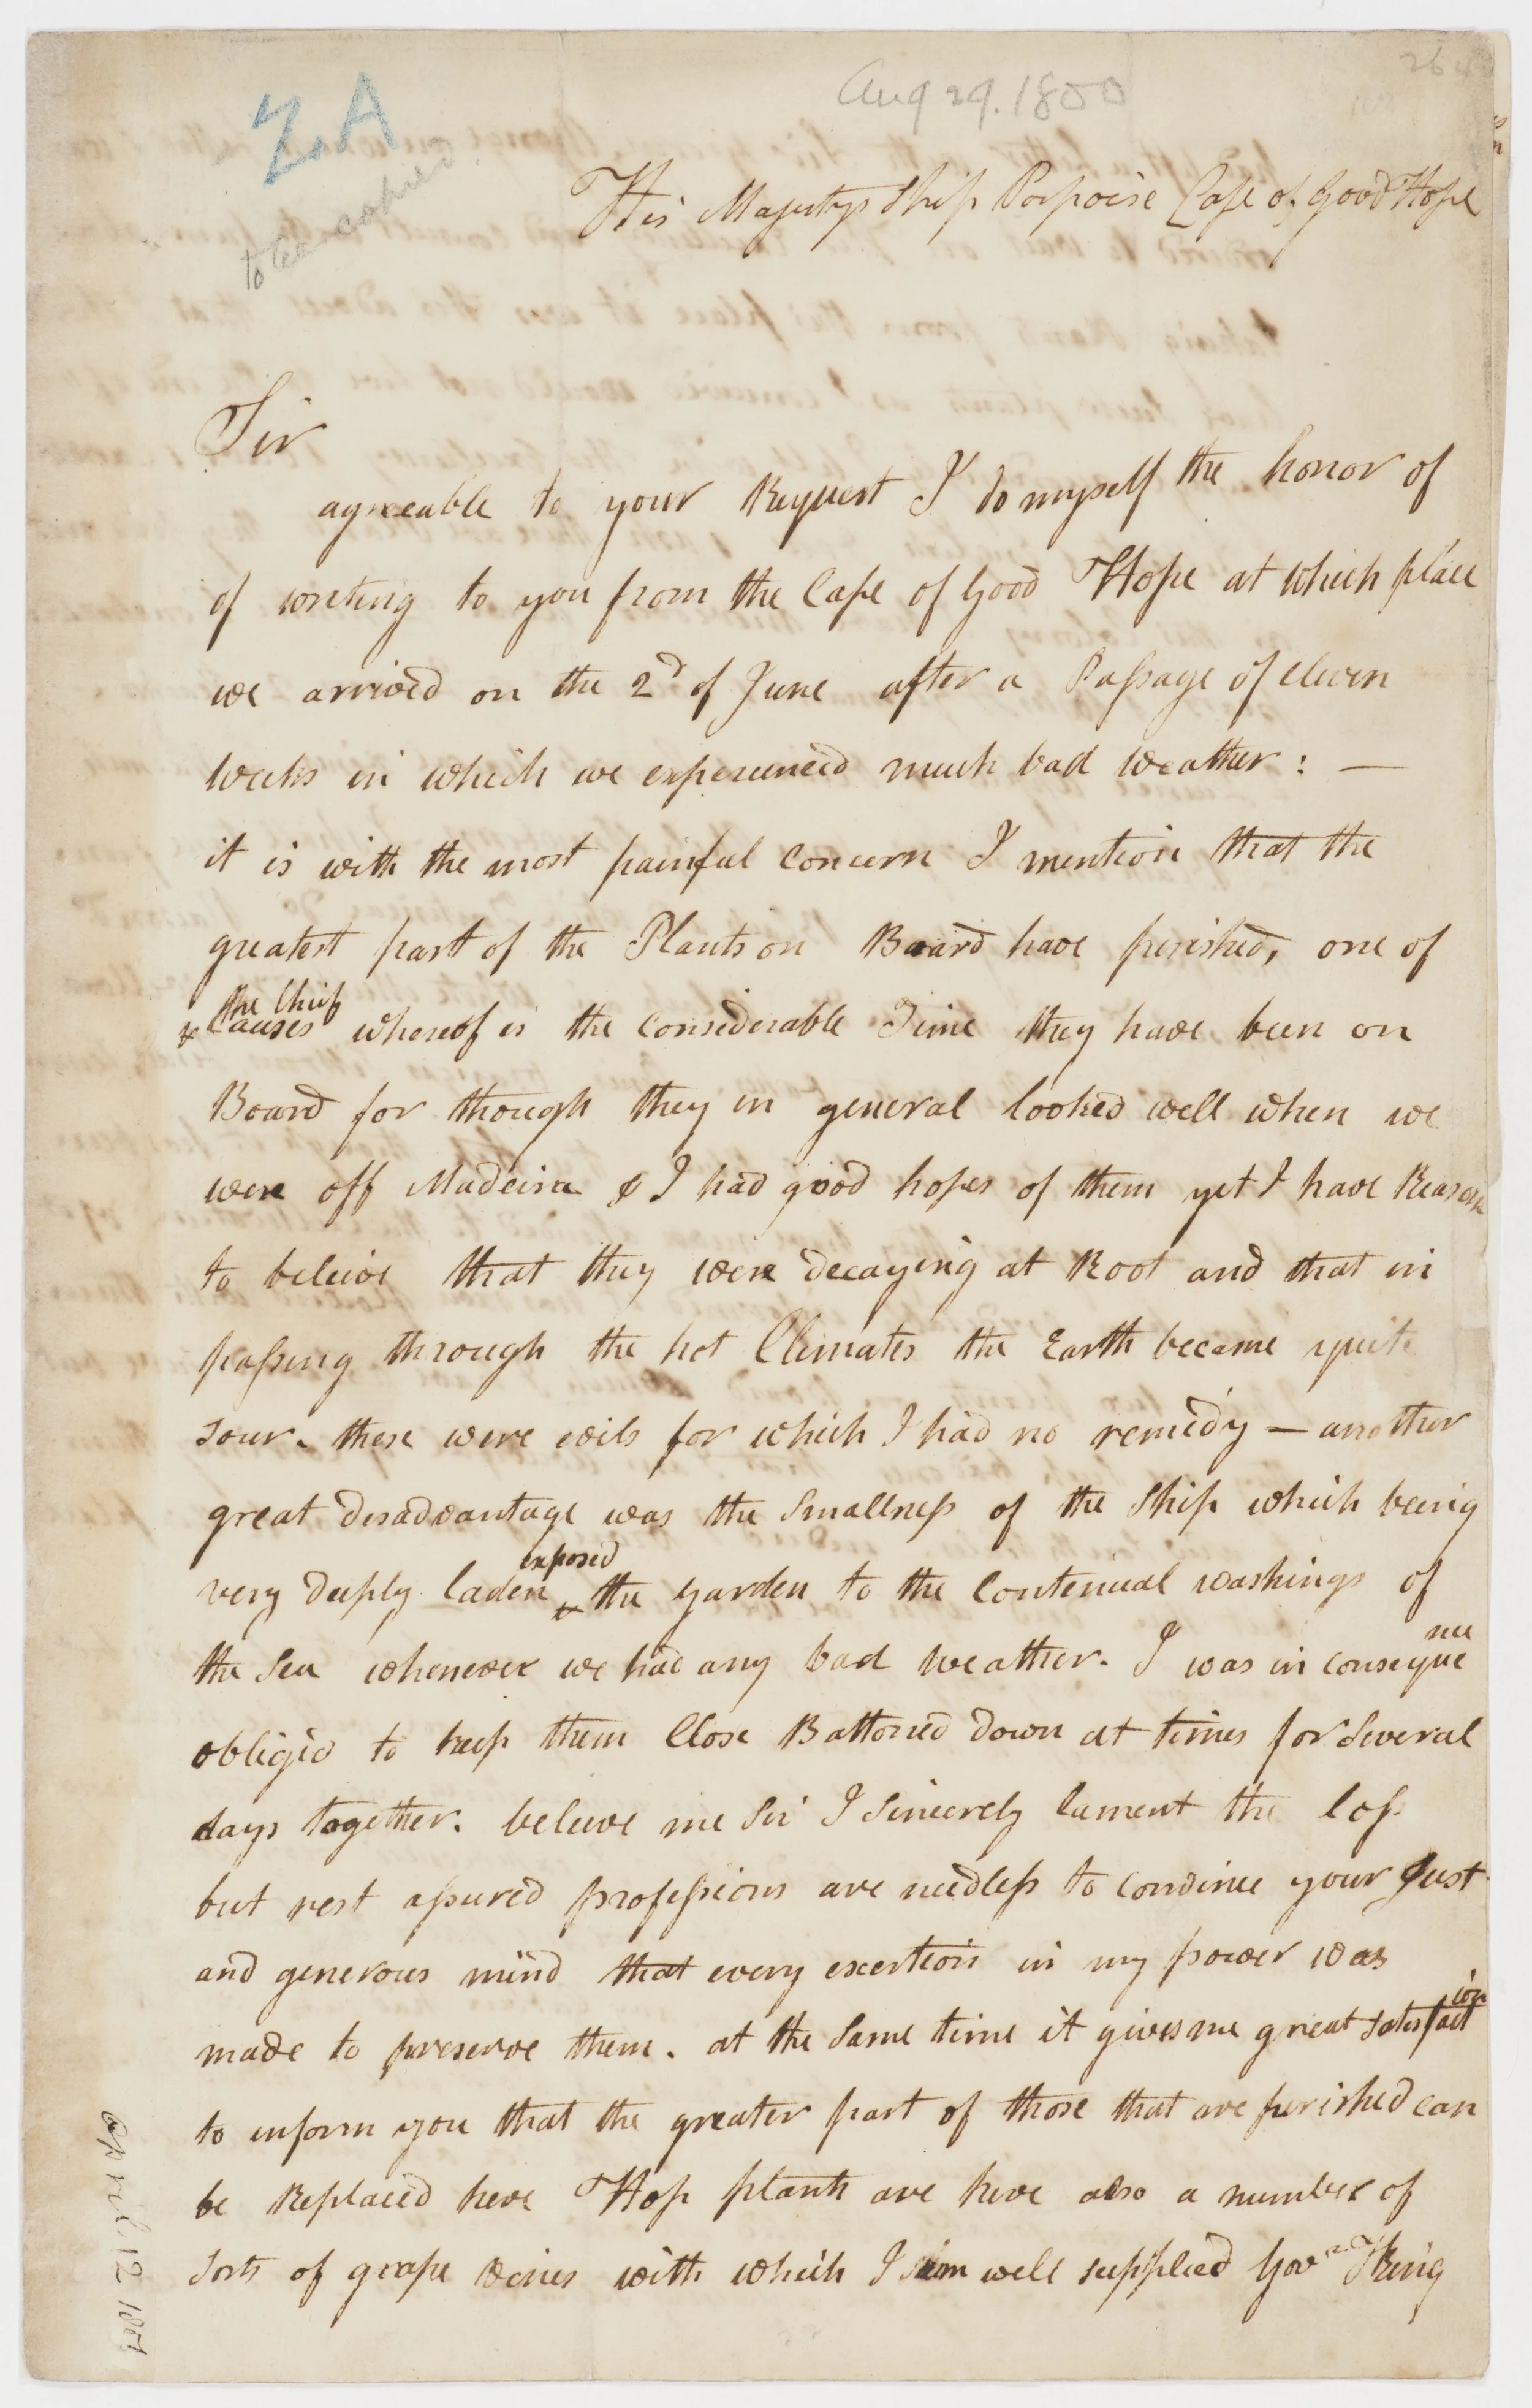 Aug 29. 1800
Z.A
to be copied
His Majestys Ship Porpoise Cape of Good Hope
Sir
agreeable to your Request I do myself the honor of
of writing to you from the Cape of Good Hope at which place
we arrived on the 2d of June after a Passage of eleven
weeks in which we experienced much bad weather : —
it is with the most painful concern I mention that the
greatest part of the Plants on Board have perished, one of
the Chief
x Causes whereof is the considerable Time they have been on
Board for though they in general looked well when we
were off Madeira & I had good hopes of them yet I have Reason
to beleive that they were decaying at Root and that in
passing through the hot Climates the Earth became quite
sour. these were evils for which I had no remedy — another
great disadvantage was the smallness of the Ship which being
exposed
very deeply laden x the Garden to the Continual washings of
the Sea whenever we had any bad weather. I was in conseque
nce
obliged to keep them Close Battoned down at times for Several
days together. beleeve me Sir I Sincerely lament the loss
but rest assured professions are needless to convince your Just
and generous mind that every exertion in my power was
made to preserve them. at the Same time it gives me great satisfact
ion
to inform you that the greater part of those that are perished can
be Replaced here Hop plants are here also a number of
sorts of grape vines with which I am well supplied Govnr King
April 12 1801